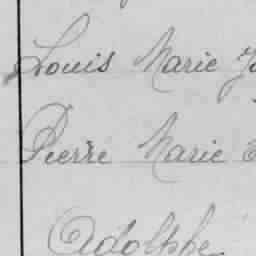 Louis Marie
Pierre Marie
Adolphe